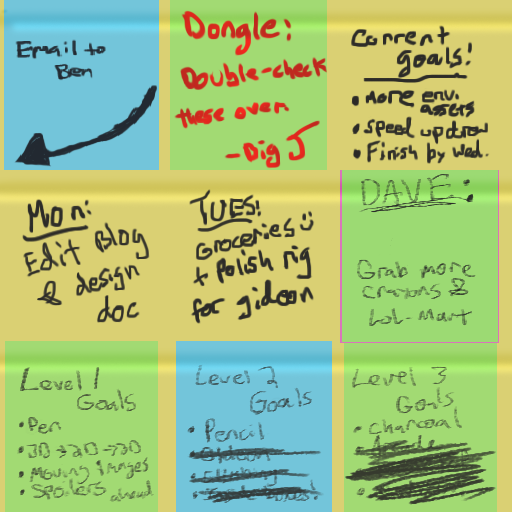 Email to
Ben
Dongle:
Double-check
these over
-Big J
Current
goals!
• More env.
assets
• Speed up draw
• Finish by Wed.
Mon:
Edit Blog
& design
doc
TUES!
Groceries
+ Polish rig
for gideon
DAVE:
Grab more
crayons @
Lol-Mart
Level 1
Goals
• Pen
• 3D → 2D → 3D
• Moving images
• Spoilers ahead
Level 2
Goals
• Pencil
Level 3
Goals
• Charcoal